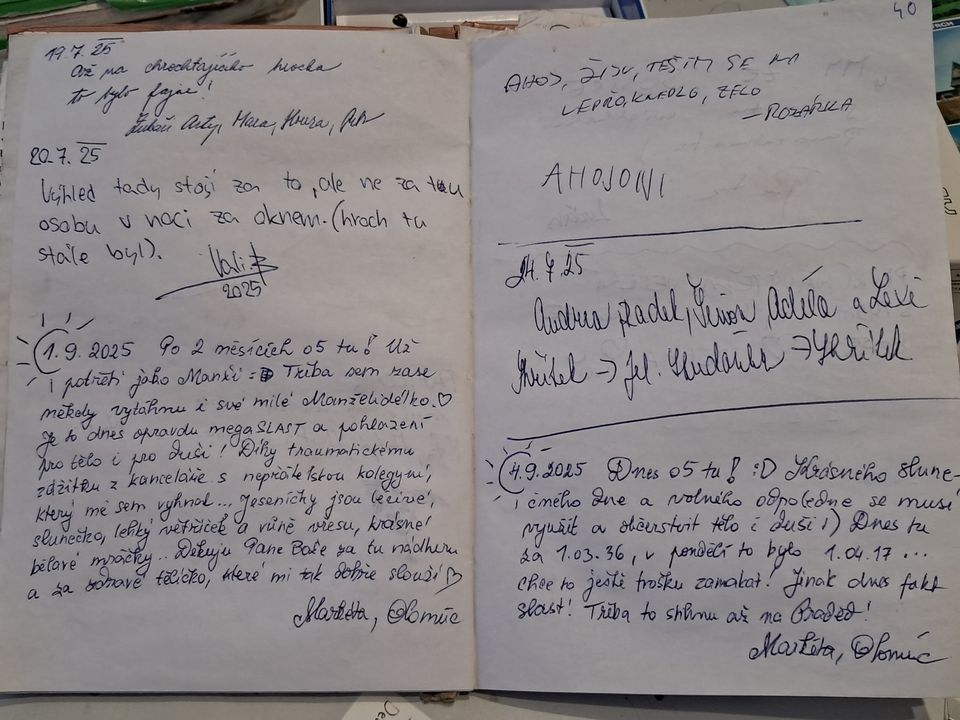 19.7.25
Až na chrochtajícího hrocha
to bylo fajne!
20.7.25
Výhled tady stojí za to, ale ne za tou
osobu v noci za oknem. (hroch tu
stále byl).
2025
1.9.2025 Po 2 měsících o5 tu! Už
i potřetí jako Manži :D Třeba sem zase
někdy vytáhnu i své milé Manželidélko. ♡
Je to dnes opravdu megaSLAST a pohlazení
pro tělo i pro duši! Díky traumatickému
zážitku z kanceláře s nepřátelskou kolegyní,
který mě sem vyhnal... Jeseníčky jsou léčivé,
slunečko, lehký větříček a vůně vřesu, krásné
bělavé mráčky.. Děkuju Pane Bože za tu nádheru
a za zdravé tělíčko, které mi tak dobře slouží ♡
Markéta, Olomouc
40
AHOJ, ŽIJU, TĚŠÍM SE NA
VEPŘO, KNEDLO, ZELO
AHOJONI
24.7.25
Andrea Radek, Šimon Adéla a
4.9.2025 Dnes o5 tu! :D Krásného slune-
čného dne a volného odpoledne se musí
využít a občerstvit tělo i duši :) Dnes tu
za 1.03.36, v pondělí to bylo 1.04.17 ...
chce to ještě trošku zamakat! Jinak dnes fakt
slast! Třeba to stihnu až na Praděd!
Markéta, Olomouc